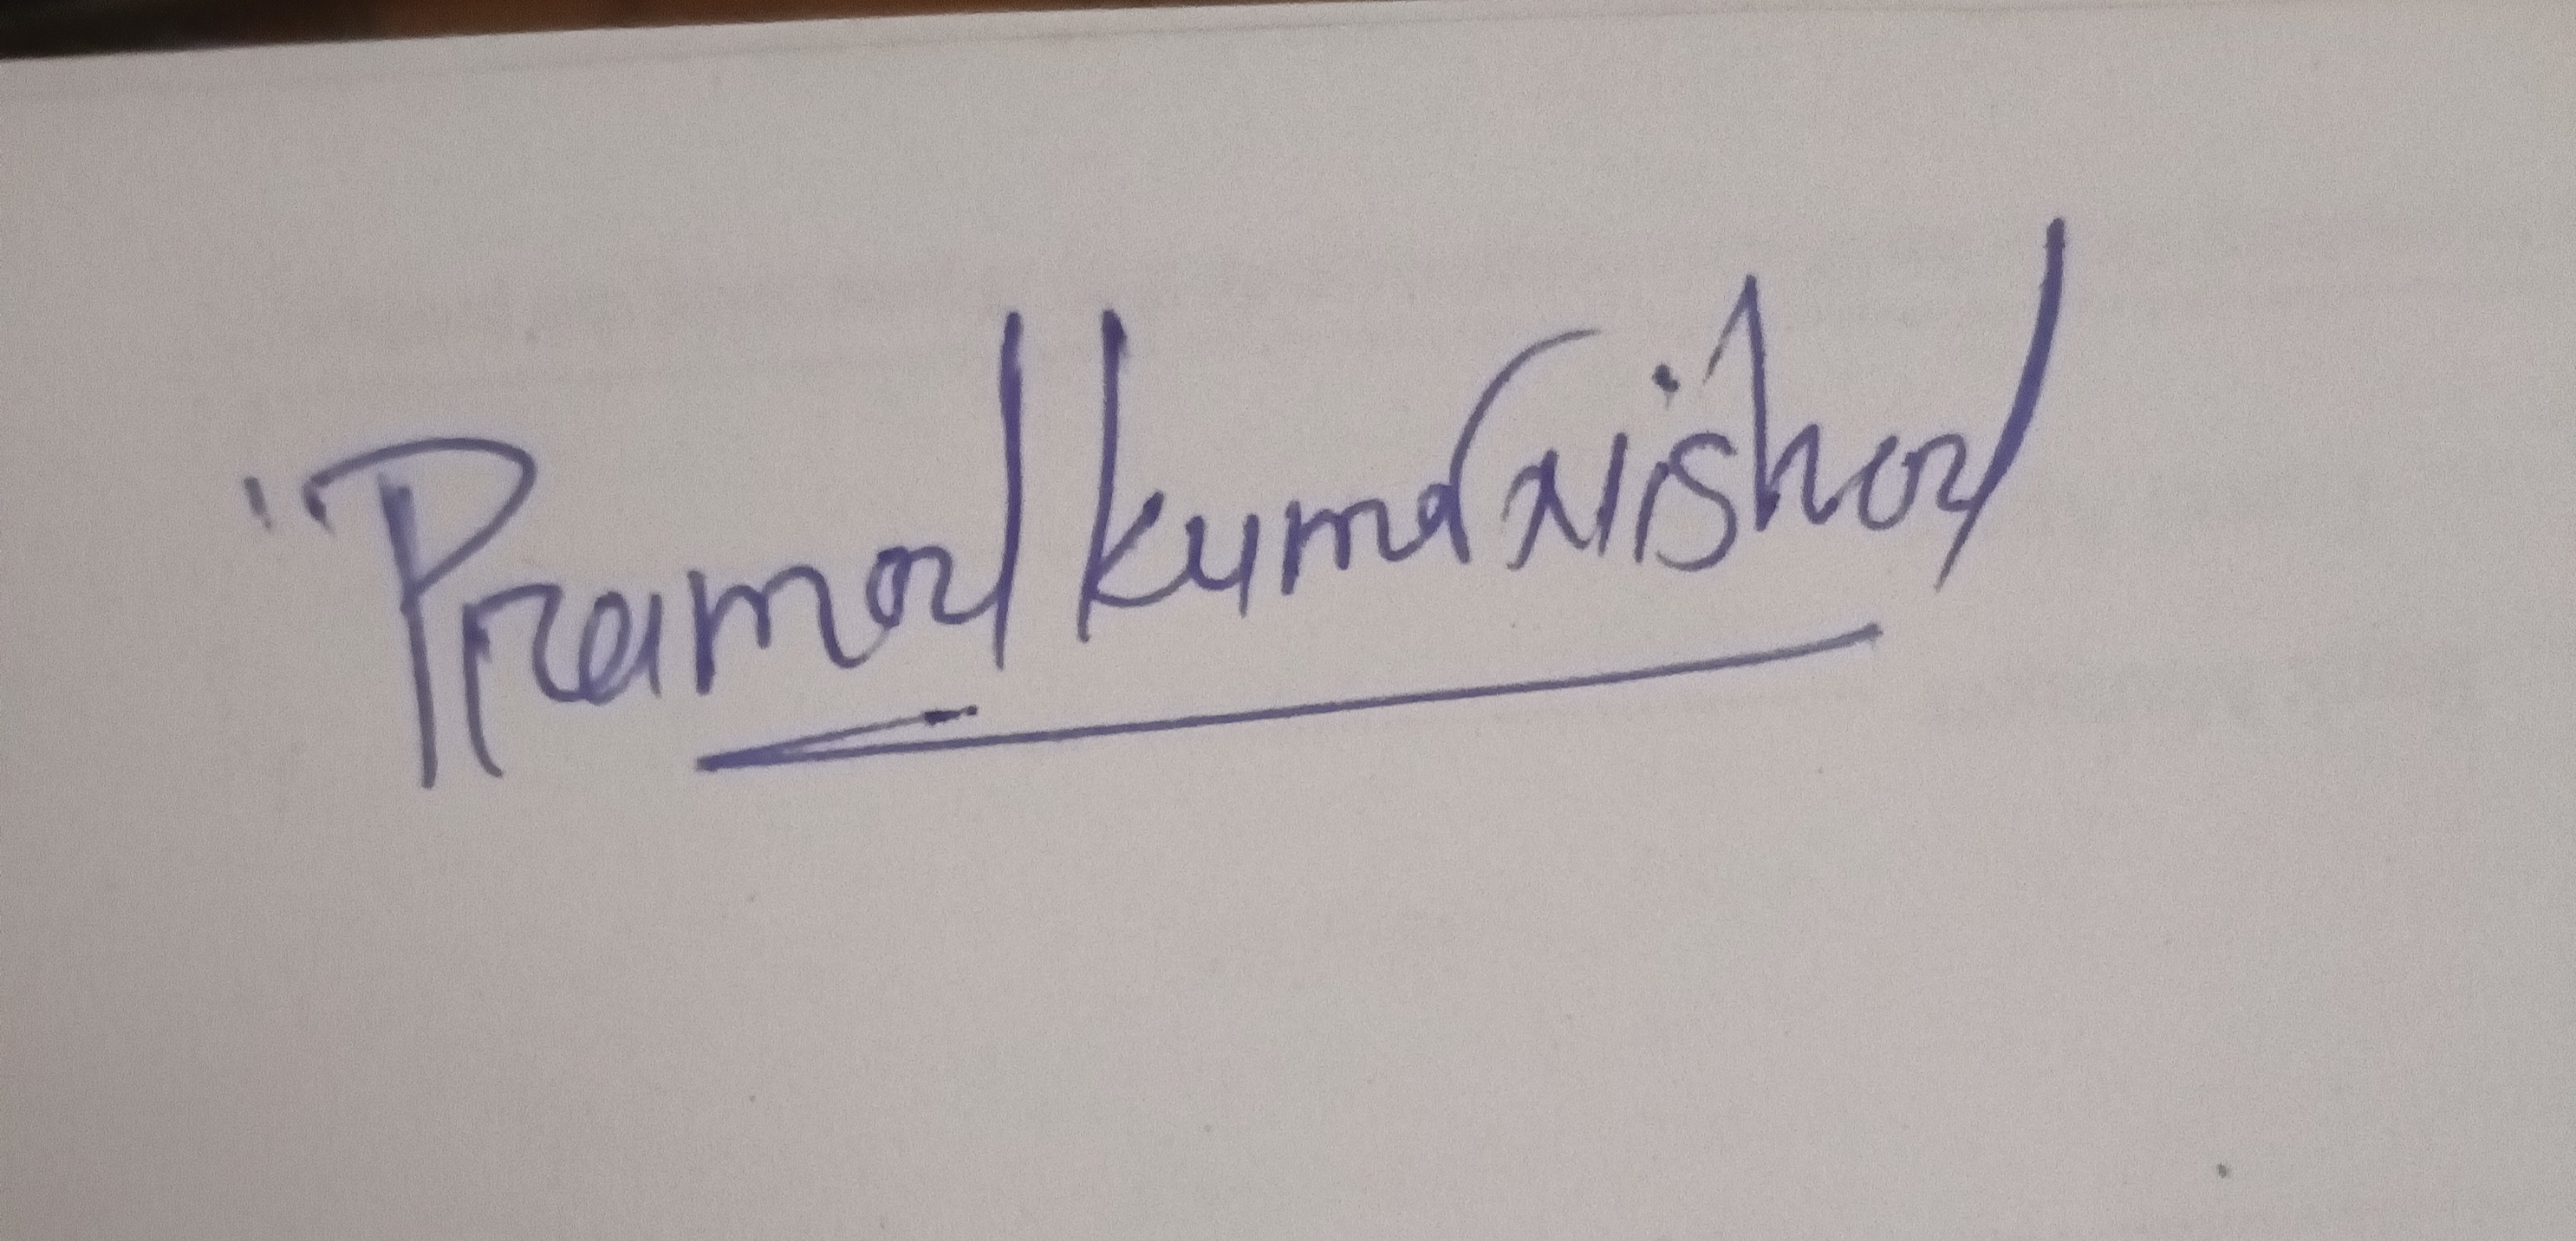 Pramod kumar Nishad